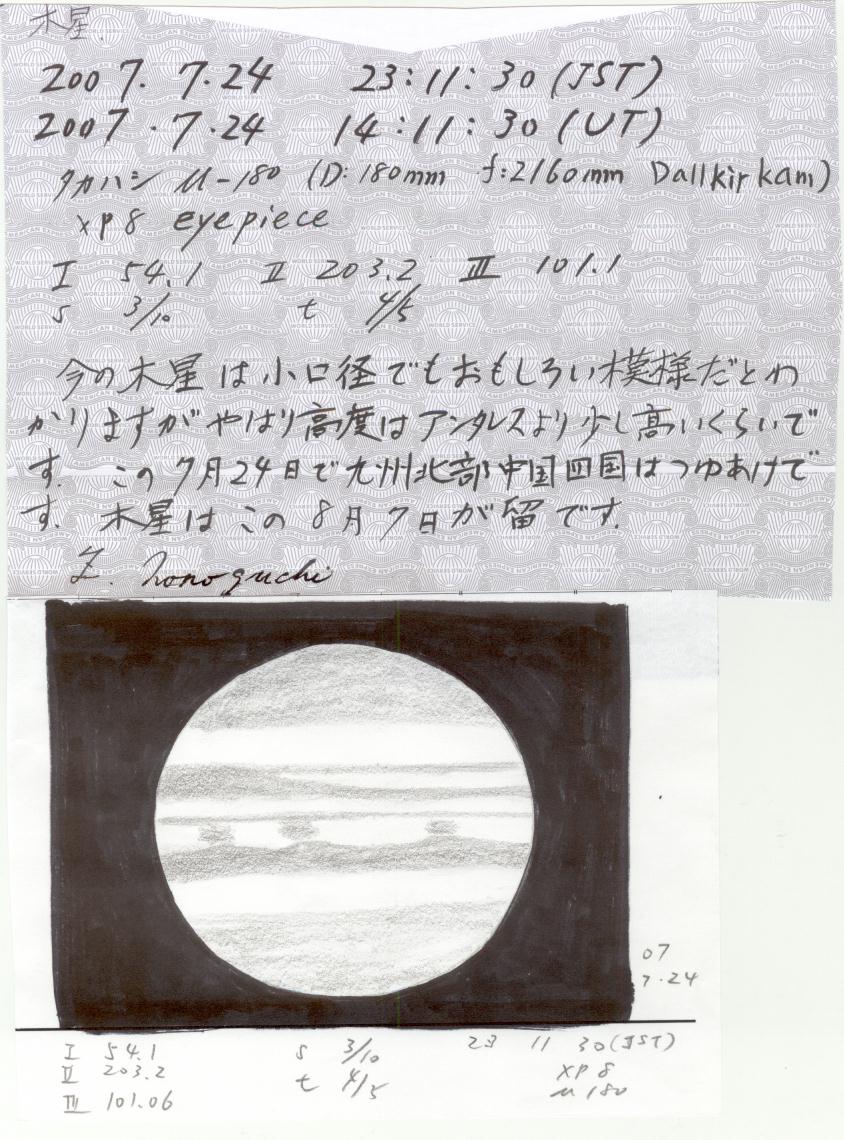 木星.
2007. 7.24 23:11:30 (JST)
2007.7.24 14:11:30 (UT)
タカハシ μ-180 (D:180mm f:2160mm Dallkirkam)
XP8 eyepiece
I 54.1 II 203.2 III 101.1
s 3/10 t 4/5
今の木星は小口径でもおもしろい模様だとわ
かりますがやはり高度はアンタレスより少し高いくらいで
す. この7月24日で九州北部中国四国はつゆあけで
す. 木星はこの8月7日が留です.
07
7.24
I 54.1 s 3/10 23 11 30(JST)
II 203.2 t 4/5 XP 8
III 101.06 μ 180